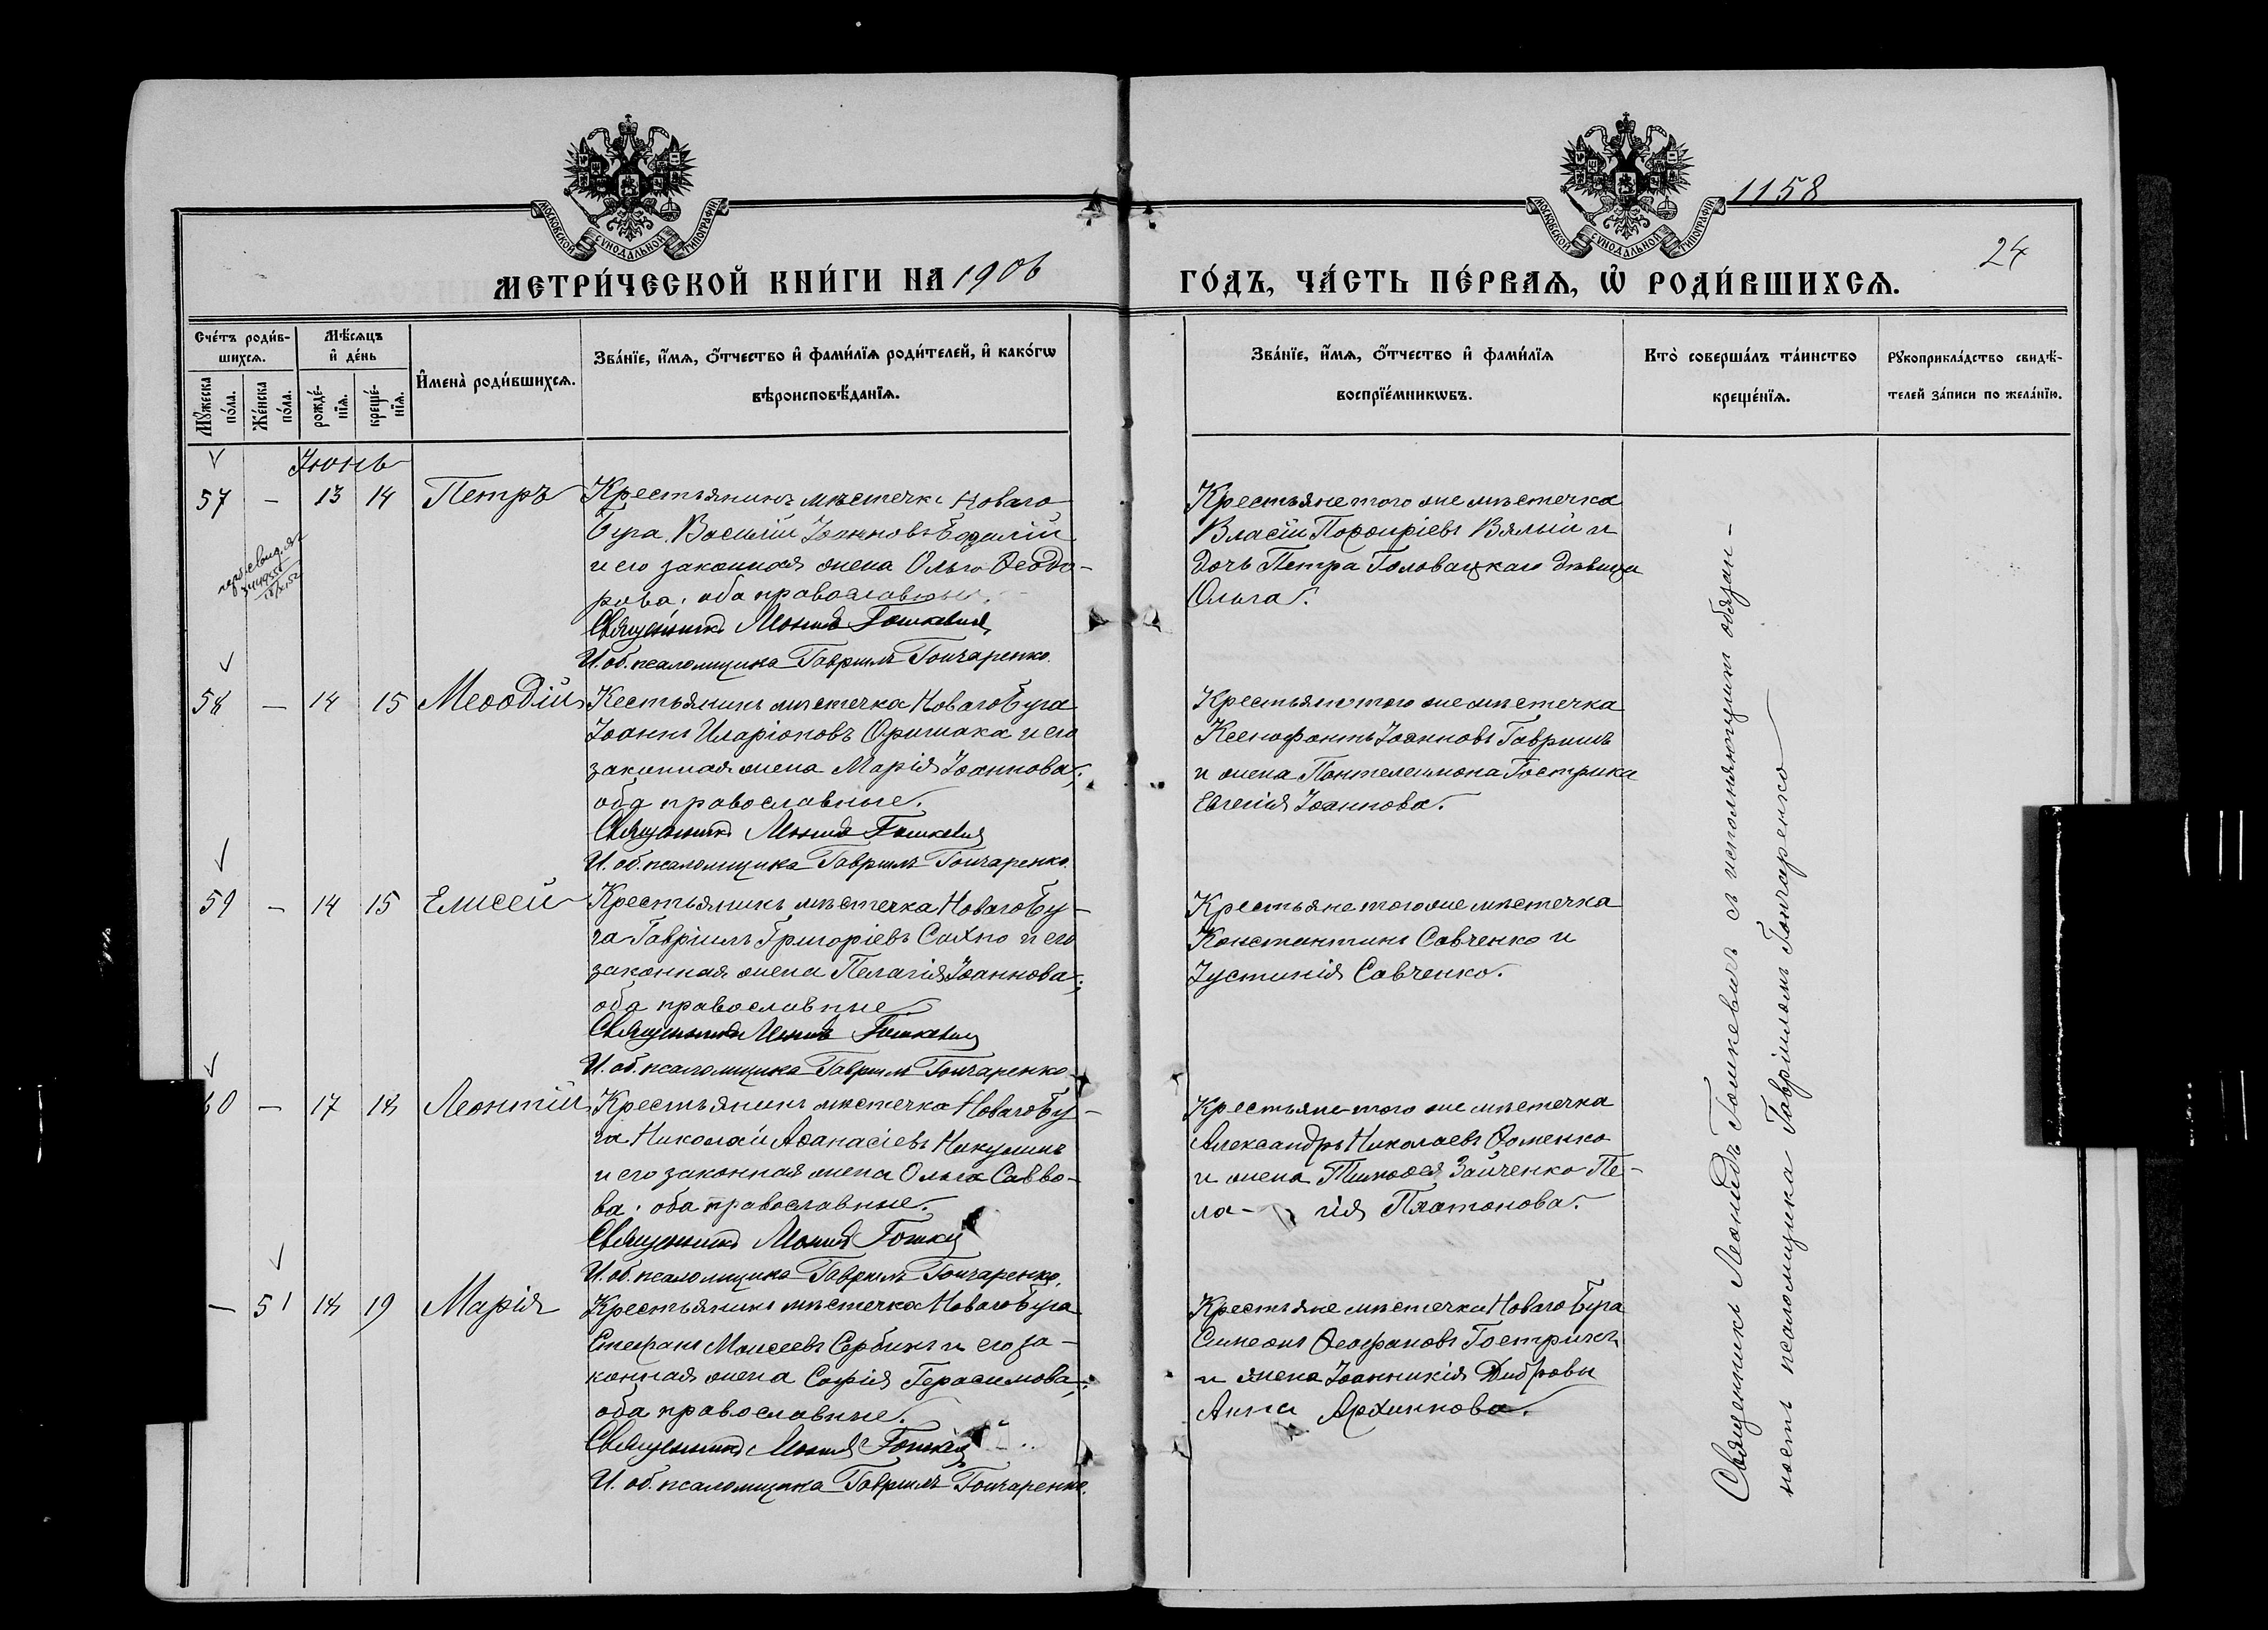 1158
24
МОСКОВСКОЙ СѴНОДАЛЬНОЙ ТИПОГРАФІИ
МОСКОВСКОЙ СѴНОДАЛЬНОЙ ТИПОГРАФІИ
МЕТРИ́ЧЕСКОЙ КНИ́ГИ НА 1906
ГО́ДЪ, ЧА́СТЬ ПЕ́РВАѦ, Ѡ҆ РОДИ́ВШИХСѦ.
Сче́тъ роди́в-
шихсѧ.
Мꙋ́жеска по́ла.
Же́нска по́ла.
Мѣ́сѧцъ
и҆ де́нь
рожде́-
нїѧ.
креще́-
нїѧ.
И҆мена̀ роди́вшихсѧ.
Зва́нїе, и҆́мѧ, ѻ҆́тчество и҆ фами́лїѧ роди́телей, и҆ како́гѡ
вѣроисповѣ́данїѧ.
Зва́нїе, и҆́мѧ, ѻ҆́тчество и҆ фами́лїѧ
воспрїе́мникѡвъ.
Кто̀ соверша́лъ та́инство
креще́нїѧ.
Рꙋкоприкла́дство свидѣ́-
телей за́писи по жела́нїю.
Іюнь
57 – 13 14 Петръ
Крестьянинъ мѣстечка Новаго
Буга Василій Іоанновъ
и его законная жена Ольга Ѳеодо-
рова; оба православные.
Священникъ Леонидъ Гошкевичъ
И. об. псаломщика Гавріилъ Гончаренко.
Крестьяне того же мѣстечка
Власій Порфиріевъ Вялый и
дочь Петра Головацкаго дѣвица
Ольга.
58 – 14 15 Меѳодій
Кестьянинъ мѣстечка Новаго Буга
Іоаннъ Иларіоновъ Оришака и его
законная жена Марія Іоаннова;
оба православные.
Священникъ Леонидъ Гошкевичъ
И. об. псаломщика Гавріилъ Гончаренко.
Крестьяне того же мѣстечка
Ксенофонтъ Іоанновъ Гавришъ
и жена Пантелеимона Гострика
Евгенія Іоаннова.
59 – 14 15 Елисей
Крестьянинъ мѣстечка Новаго Бу-
га Гавріилъ Григоріевъ Сахно и его
законная жена Пелагія Іоаннова;
оба православные
Священникъ Леонидъ Гошкевичъ
И. об. псаломщика Гавріилъ Гончаренко
Крестьяне того же мѣстечка
Константинъ Савченко и
Іустинія Савченко.
60 – 17 18 Леонтій
Крестьянинъ мѣстечка Новаго Бу-
га Николай Аѳанасіевъ Никулинъ
и его законная жена Ольга Савво-
ва; оба православные.
Священникъ Леонидъ
И. об. псаломщика Гавріилъ Гончаренко.
Крестьяне того же мѣстечка
Александръ Николаевъ Ѳоменко
и жена Тимоѳея Зайченко Пе-
ла- гія Платонова.
– 51 18 19 Марія
Крестьянинъ мѣстечка Новаго Буга
Стефанъ Моисеевъ Сербинъ и его за-
конная жена Софія Герасимова;
оба православные.
Священникъ Леонидъ
И. об. псаломщика Гавріилъ Гончаренко.
Крестьяне мѣстечка Новаго Буга
Симеонъ Ѳеофановъ Гострикъ
и жена Іоанникія Дибровы
Анна Архиппова.
Священникъ Леонидъ Гошкевичъ съ исполняющимъ обязан-
ность псаломщика Гавріиломъ Гончаренко